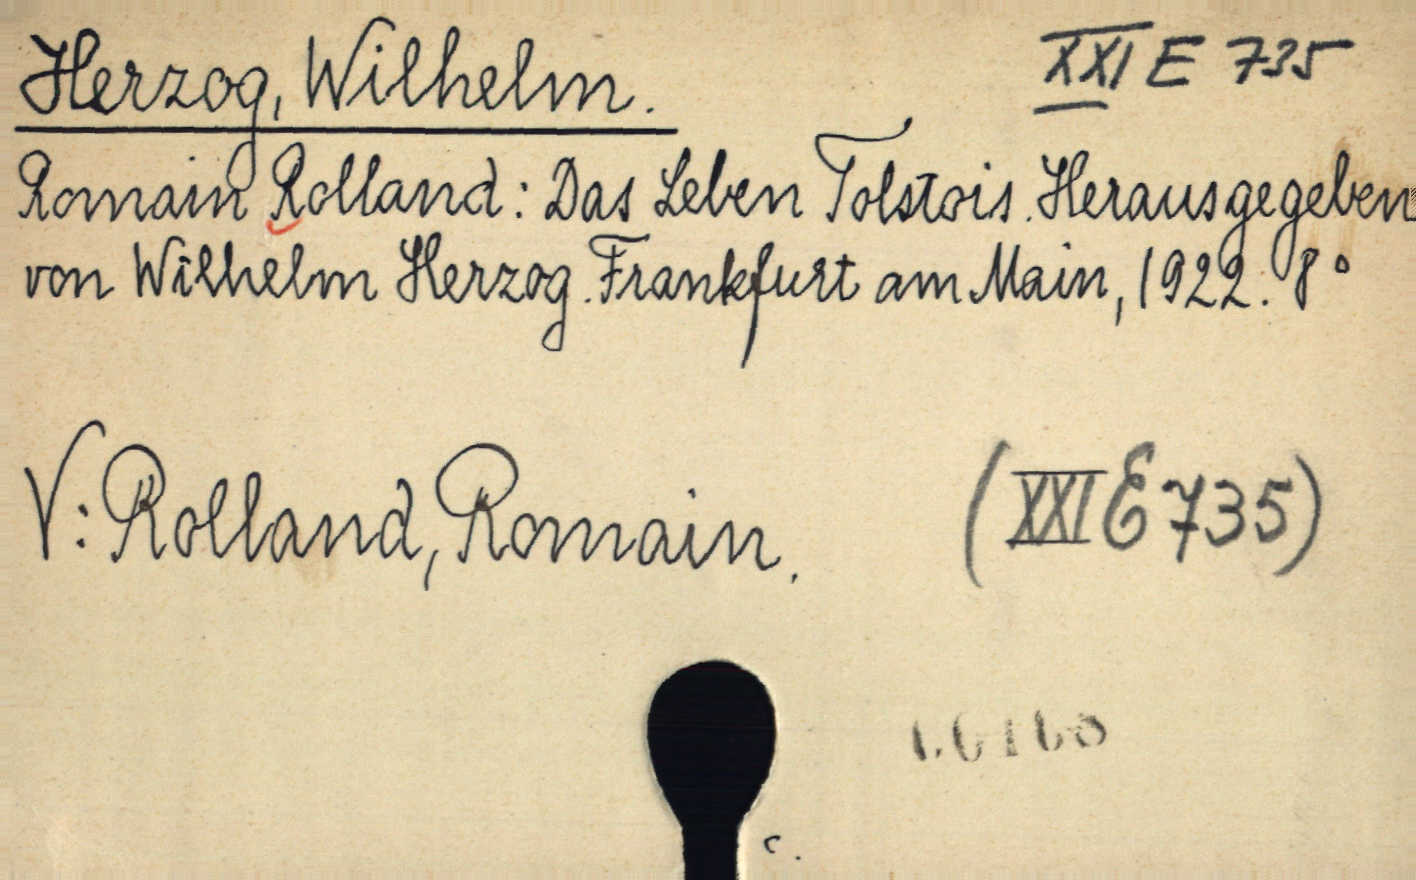 Herzog, Wilhelm.
XXI E 735
Romain Rolland: Das Leben Tolstois. Herausgegeben
von Wilhelm Herzog. Frankfurt am Main, 1922. 8°
V: Rolland, Romain.
(XXI E 735)
c.